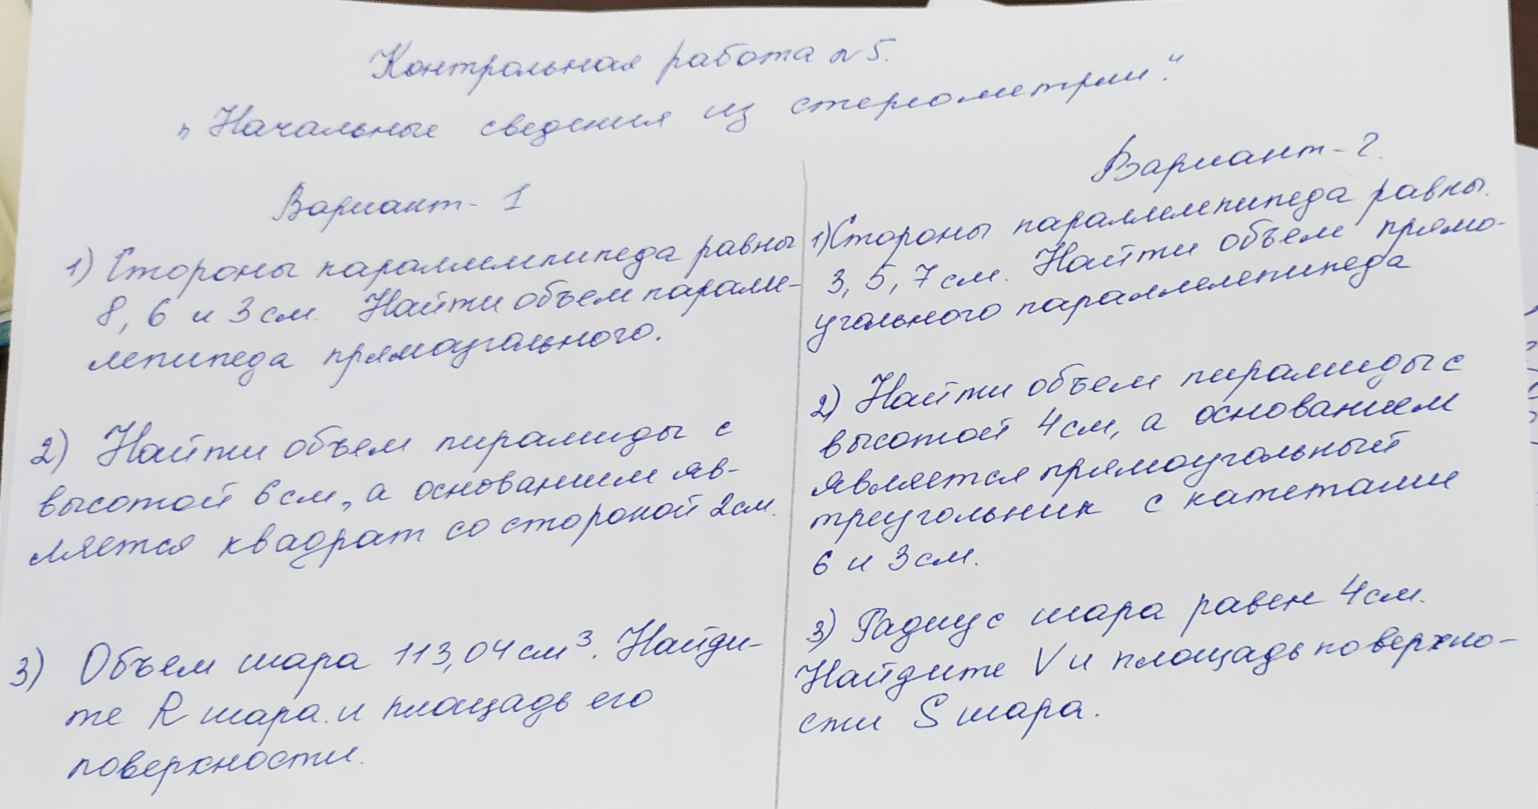 Контрольная работа №5.
"Начальные сведения из стереометрии."
Вариант - 1
1) Стороны параллелепипеда равны
8, 6 и 3 см. Найти объем паралле-
лепипеда прямоугольного.
2) Найти объем пирамиды с
высотой 6 см, а основанием яв-
ляется квадрат со стороной 2 см.
3) Объем шара 113,04 см³. Найди-
те R шара и площадь его
поверхности.
Вариант - 2.
1) Стороны параллелепипеда равны
3, 5, 7 см. Найти объем прямо-
угольного параллелепипеда
2) Найти объем пирамиды с
высотой 4 см, а основанием
является прямоугольный
треугольник с катетами
6 и 3 см.
3) Радиус шара равен 4 см.
Найдите V и площадь поверхно-
сти S шара.